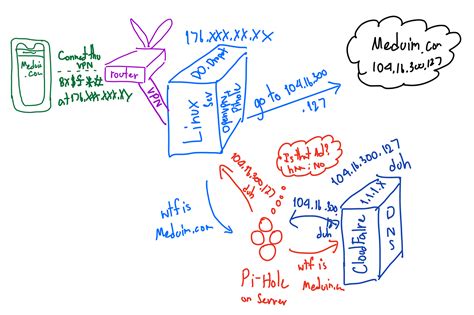 Meduim
.Com
Connected thru
VPN
at 176.XX.XXX.XY
router
VPN
176.XXX.XX.XX
D.O. Droplet
Linux
Srv
OpenVPN +
Pihole
go to 104.16.300
.127
Meduim.com
104.16.300.127
wtf is
Meduim.com
104.16.300.127
duh
Is that Ad?
hmm: No
Pi-Hole
on Server
104.16.300
duh
wtf is
Meduim.com
104.16.300.127
duh
1.1.1.X
CloudFalre
DNS